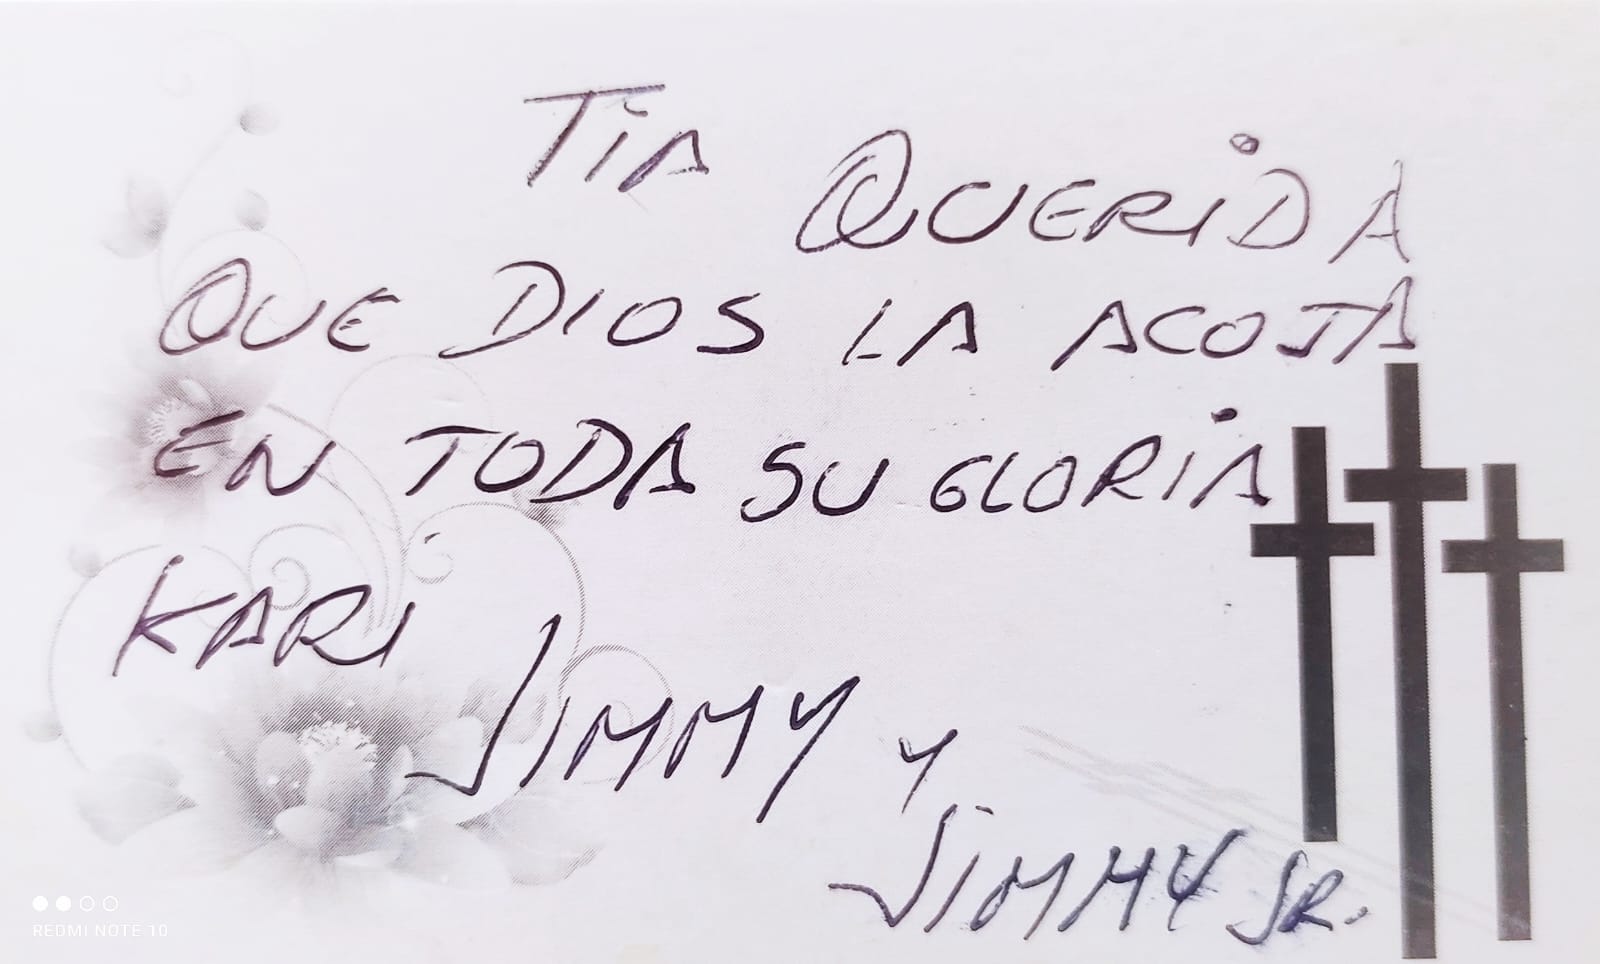 TIA QUERIDA
QUE DIOS LA ACOJA
EN TODA SU GLORIA
KARI JIMMY Y
JIMMY SR.
REDMI NOTE 10